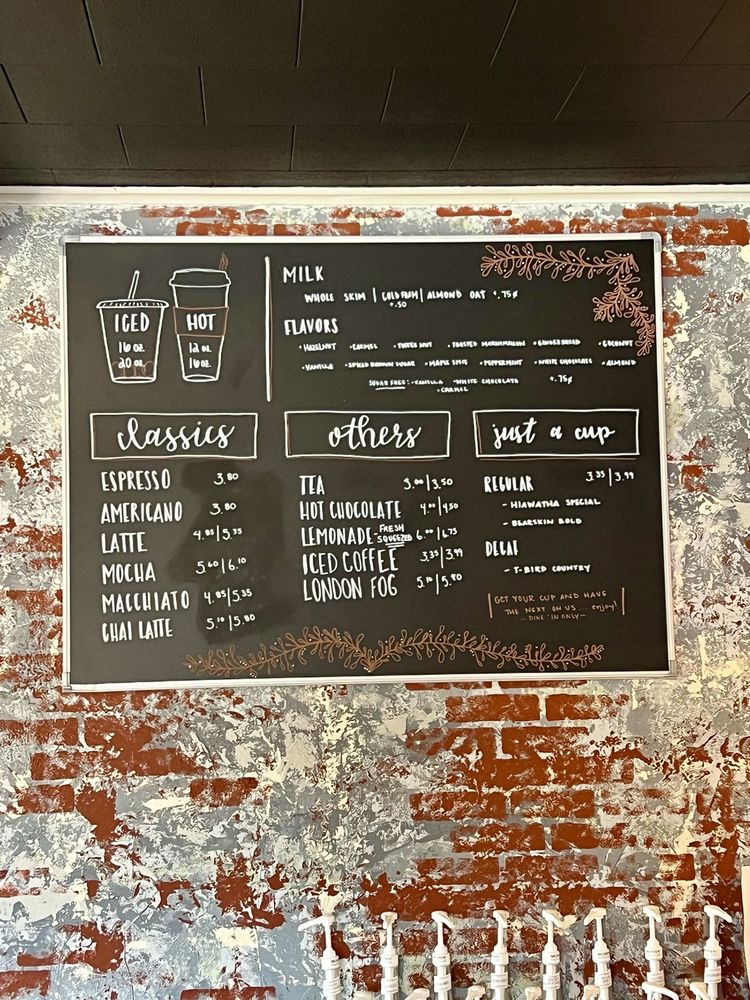 ICED
16 oz.
20 oz.
HOT
12 oz.
16 oz.
MILK
WHOLE SKIM | COLD FOAM | ALMOND OAT +.75¢
+.50
FLAVORS
•HAZELNUT •CARMEL •TOFFEE NUT •TOASTED MARSHMALLOW •GINGERBREAD •COCONUT
•VANILLA •SPICED BROWN SUGAR •MAPLE SPICE •PEPPERMINT •WHITE CHOCOLATE •ALMOND
SUGAR FREE: •VANILLA •WHITE CHOCOLATE +.75¢
•CARAMEL
classics
ESPRESSO 3.80
AMERICANO 3.80
LATTE 4.85|5.35
MOCHA 5.60|6.10
MACCHIATO 4.85|5.35
CHAI LATTE 5.10|5.80
others
TEA 3.00|3.50
HOT CHOCOLATE 4.00|4.50
LEMONADE-FRESH SQUEEZED 6.00|6.75
ICED COFFEE 3.35|3.99
LONDON FOG 5.10|5.80
just a cup
REGULAR 3.35|3.99
- HIAWATHA SPECIAL
- BEARSKIN BOLD
DECAF
- T-BIRD COUNTRY
GET YOUR CUP AND HAVE
THE NEXT ON US... enjoy!
- DINE IN ONLY -